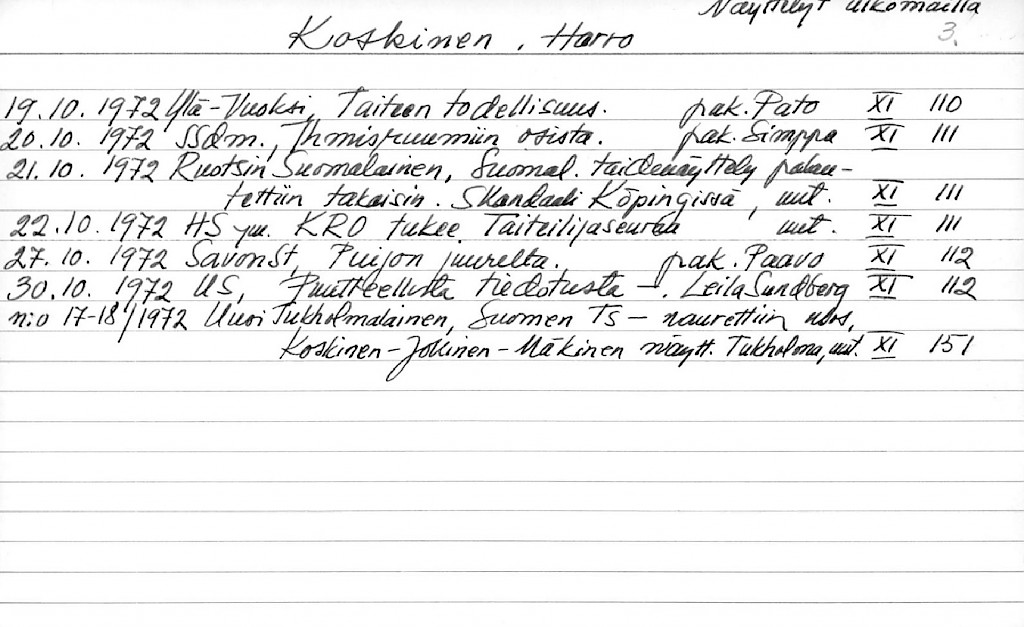 Näyttelyt ulkomailla
Koskinen, Harro 3.
19.10. 1972 Ylä-Vuoksi, Taiteen todellisuus. pak. Pato XI 110
20.10. 1972 SSdm., Ihmisruumiin osista. pak. Simppa XI 111
21.10. 1972 Ruotsin Suomalainen, Suomal. taidenäyttely palau-
tettiin takaisin. Skandaali Köpingissä, uut. XI 111
22.10. 1972 HS ym. KRO tukee Taiteilijaseuraa uut. XI 111
27.10. 1972 SavonSt, Puijon juurelta. pak. Paavo XI 112
30.10. 1972 US, Puutteellista tiedotusta -. Leila Sundberg XI 112
n:o 17-18/1972 Uusi Tukholmalainen, Suomen TS - naurettiin ulos,
Koskinen-Jokinen-Mäkinen näytt. Tukholma, uut. XI 151